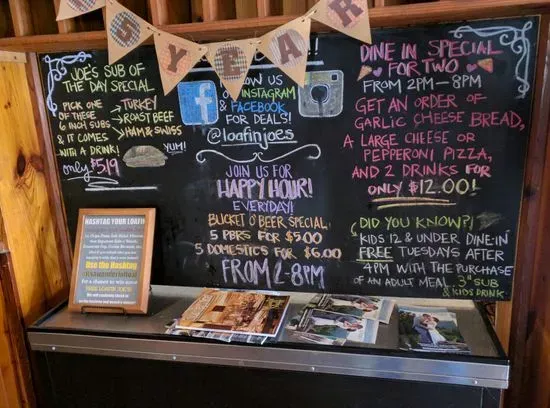 YEAR
JOE'S SUB OF
THE DAY SPECIAL
PICK ONE
OF THESE
6 INCH SUBS
& IT COMES
WITH A DRINK!
only $5.19
→ TURKEY
→ ROAST BEEF
→ HAM & SWISS
YUM!
US
INSTAGRAM
& FACEBOOK
FOR DEALS!
@loafinjoes
JOIN US FOR
HAPPY HOUR!
EVERYDAY!
BUCKET O' BEER SPECIAL
5 PBRS FOR $5.00
5 DOMESTICS FOR $6.00
FROM 2-8PM
DINE IN SPECIAL
FOR TWO
FROM 2PM-8PM
GET AN ORDER OF
GARLIC CHEESE BREAD,
A LARGE CHEESE OR
PEPPERONI PIZZA,
AND 2 DRINKS FOR
ONLY $12.00!
DID YOU KNOW?!
KIDS 12 & UNDER DINE-IN
FREE TUESDAYS AFTER
4PM WITH THE PURCHASE
OF AN ADULT MEAL. 3" SUB
& KIDS DRINK.
HASHTAG YOUR LOAF!!
Use the Hashtag
For a chance to win some
FREE LOAFIN JOE'S!